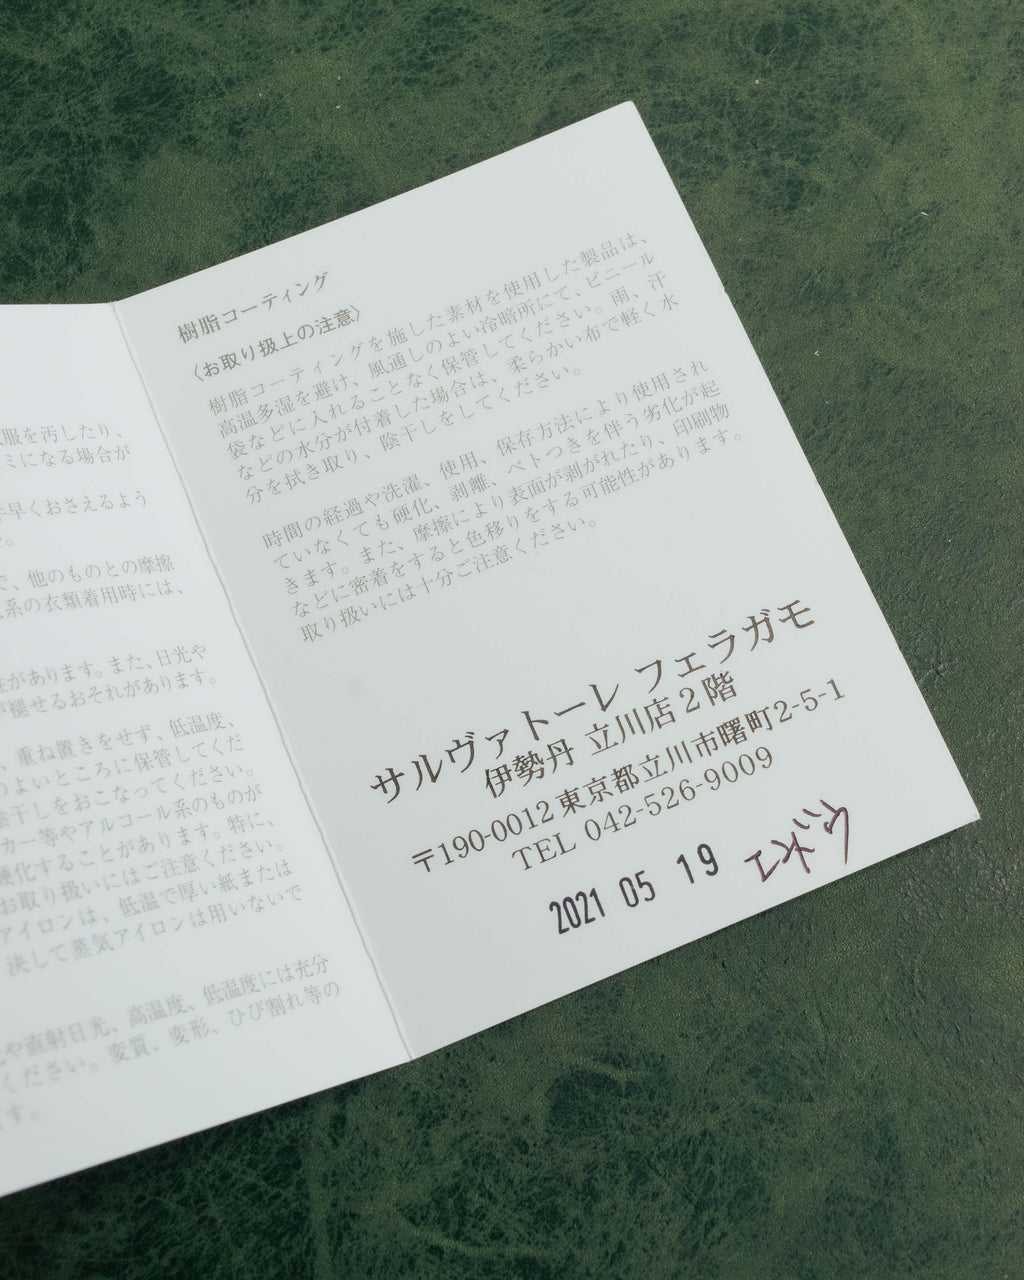 服を汚したり、
ミになる場合が
早くおさえるよう
。
で、他のものとの摩擦
系の衣類着用時には、
性があります。また、日光や
が褪せるおそれがあります。
、重ね置きをせず、低温度、
のよいところに保管してくだ
陰干しをおこなってください。
カー等やアルコール系のものが
硬化することがあります。特に、
お取り扱いにはご注意ください。
アイロンは、低温で厚い紙または
決して蒸気アイロンは用いないで
や直射日光、高温度、低温度には充分
ください。変質、変形、ひび割れ等の
ます。
樹脂コーティング
〈お取り扱上の注意〉
樹脂コーティングを施した素材を使用した製品は、
高温多湿を避け、風通しのよい冷暗所にて、ビニール
袋などに入れることなく保管してください。雨、汗
などの水分が付着した場合は、柔らかい布で軽く水
分を拭き取り、陰干しをしてください。
時間の経過や洗濯、使用、保存方法により使用され
ていなくても硬化、剥離、ベトつきを伴う劣化が起
きます。また、摩擦により表面が剥がれたり、印刷物
などに密着をすると色移りをする可能性があります。
取り扱いには十分ご注意ください。
サルヴァトーレ フェラガモ
伊勢丹 立川店2階
〒190-0012 東京都立川市曙町2-5-1
TEL 042-526-9009
2021 05 19 エンドウ